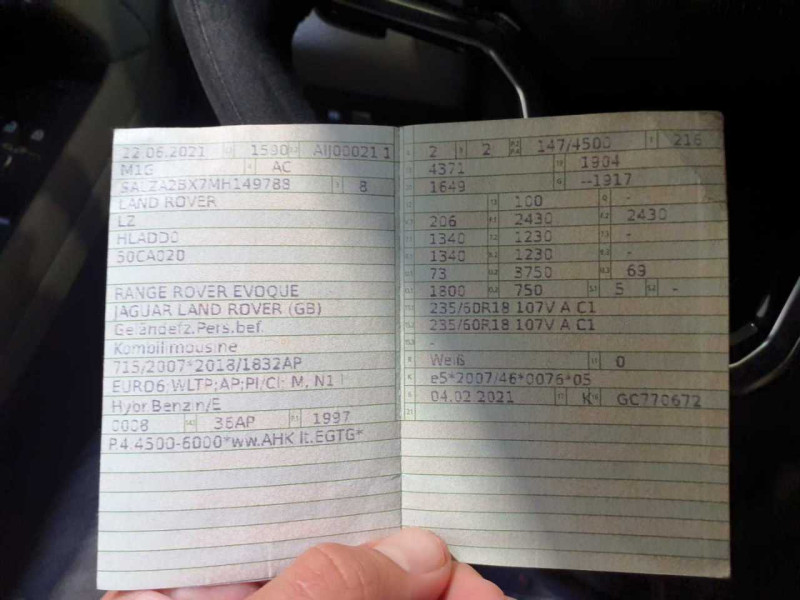 12.06.2021 1590 AIJ00021 1
M1G AC
SALZA2BX7MH149789 8
LAND ROVER
LZ
HLADD0
50CA020
RANGE ROVER EVOQUE
JAGUAR LAND ROVER (GB)
Geländefz.Pers.bef.
Kombilimousine
715/2007*2018/1832AP
EURO6 WLTP;AP;PI/CI; M, N1 I
Hybr.Benzin/E
0008 36AP 1997
P.4:4500-6000*ww.AHK lt.EGTG*
2 2 147/4500 216
4371 1904
1649 --1917
- 100 -
206 2430 2430
1340 1230 -
1340 1230 -
73 3750 69
1800 750 5 -
235/60R18 107V A C1
235/60R18 107V A C1
-
Weiß 0
e5*2007/46*0076*05
04.02.2021 K GC770672